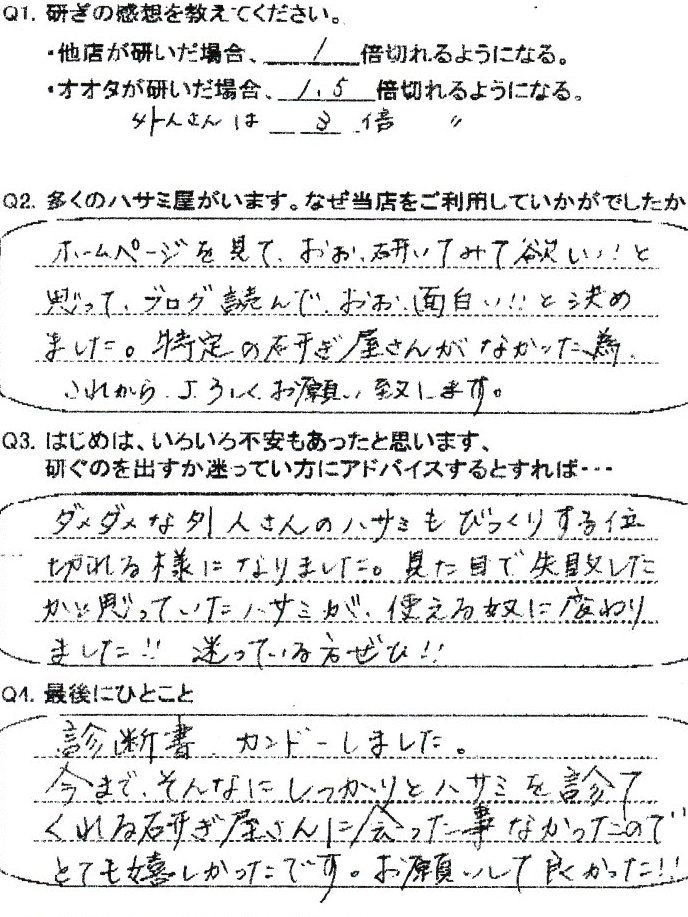 Q1. 研ぎの感想を教えてください。
・他店が研いだ場合、 1 倍切れるようになる。
・オオタが研いだ場合、 1.5 倍切れるようになる。
外人さんは 3 倍 〃
Q2. 多くのハサミ屋がいます。なぜ当店をご利用していかがでしたか
ホームページを見て、おお、研いでみて欲しい!と
思って、ブログ読んで、おお、面白い!!と決め
ました。特定の研ぎ屋さんがなかった為、
これからよろしくお願い致します。
Q3. はじめは、いろいろ不安もあったと思います、
研ぐのを出すか迷ってい方にアドバイスするとすれば・・・
ダメダメな外人さんのハサミもびっくりする位
切れる様になりました。見た目で失敗した
かと思っていたハサミが、使える奴に変わり
ました!! 迷っている方ぜひ!!
Q4. 最後にひとこと
診断書、カンドーしました。
今まで、そんなにしっかりとハサミを診て
くれる研ぎ屋さんに会った事なかったので
とても嬉しかったです。お願いして良かった!!